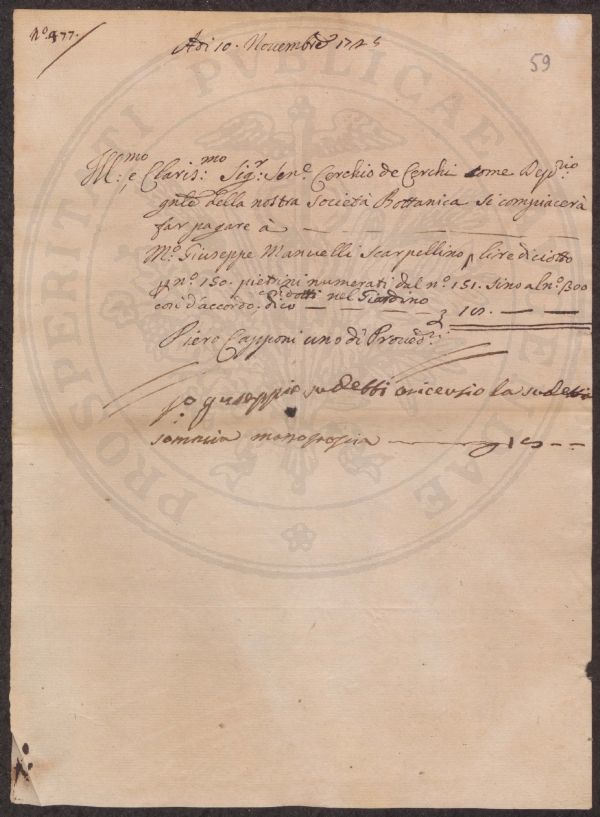 N.º 477.
59
Adi 10. Novembre 1725
Ill.mo e Claris.mo Sig.r Sen.e Cerchio de Cerchi come Dep.rio
gnle della nostra Società Bottanica si compiacerà
far pagare à
M.o Giuseppe Manuelli Scarpellino p lire diciotto
p n.o 150. pietrini numerati dal n.o 151. sino al n.o 300
così d'accordo condotti nel Giardino dico 18.
Piero Capponi uno di Proved.ri
Jo giuseppio sudetti o riceuto la sudetta
somma mano propia 18
PROSPERITATI PUBLICAE